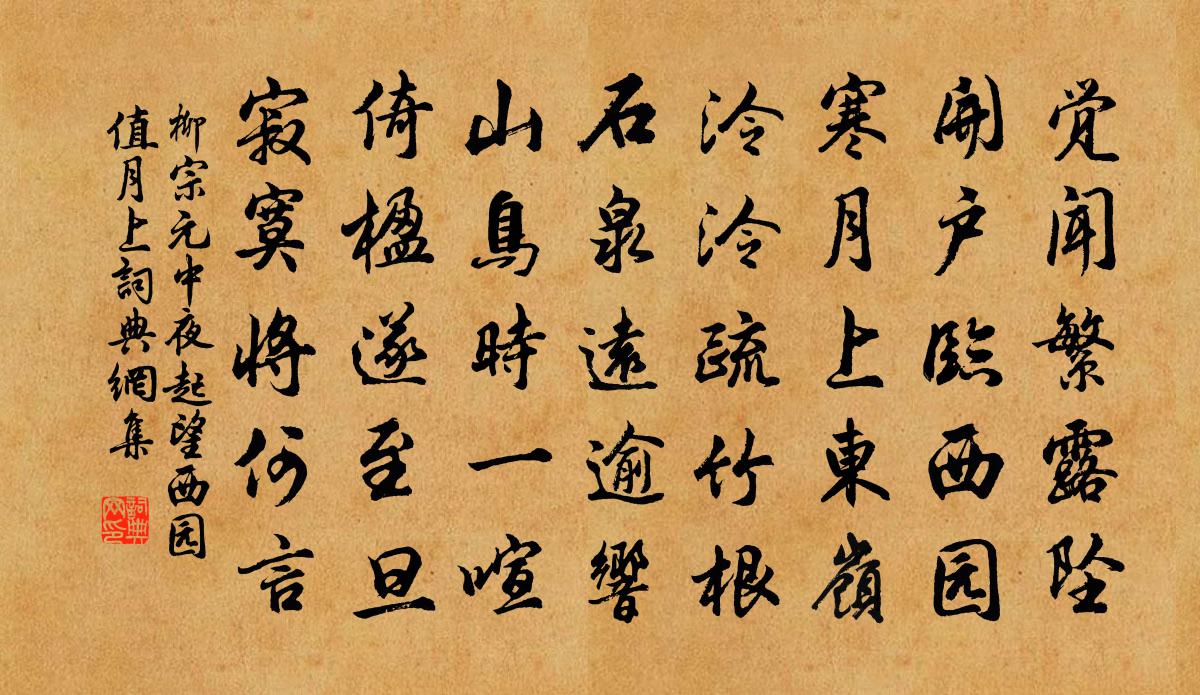 覚聞繁露坠
開户臨西园
寒月上東嶺
泠泠疏竹根
石泉遠逾響
山鳥時一喧
倚楹遂至旦
寂寞將何言
柳宗元中夜起望西园
值月上詞典網集
詞典
网印